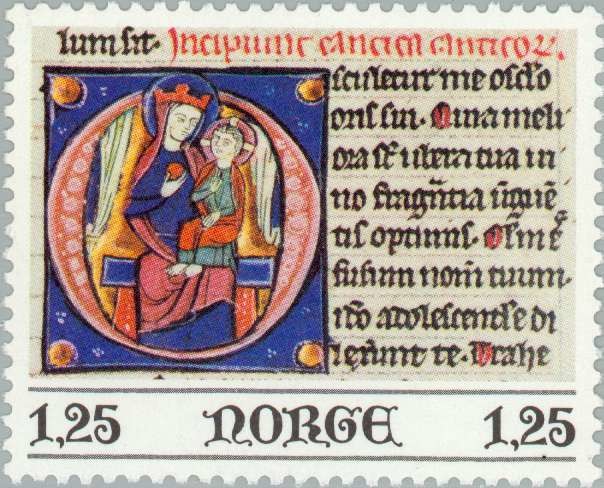 lum sit. Incipiunt cantica canticoꝝ.
Osculetur me osculo
oris sui. Quia meli
ora sūt ubera tua ui
no fragūtia ūguē
tis optimis.
fusum nom̄ tuum.
adolescentule di
lex̄unt te. Trahe
1,25 NORGE 1,25